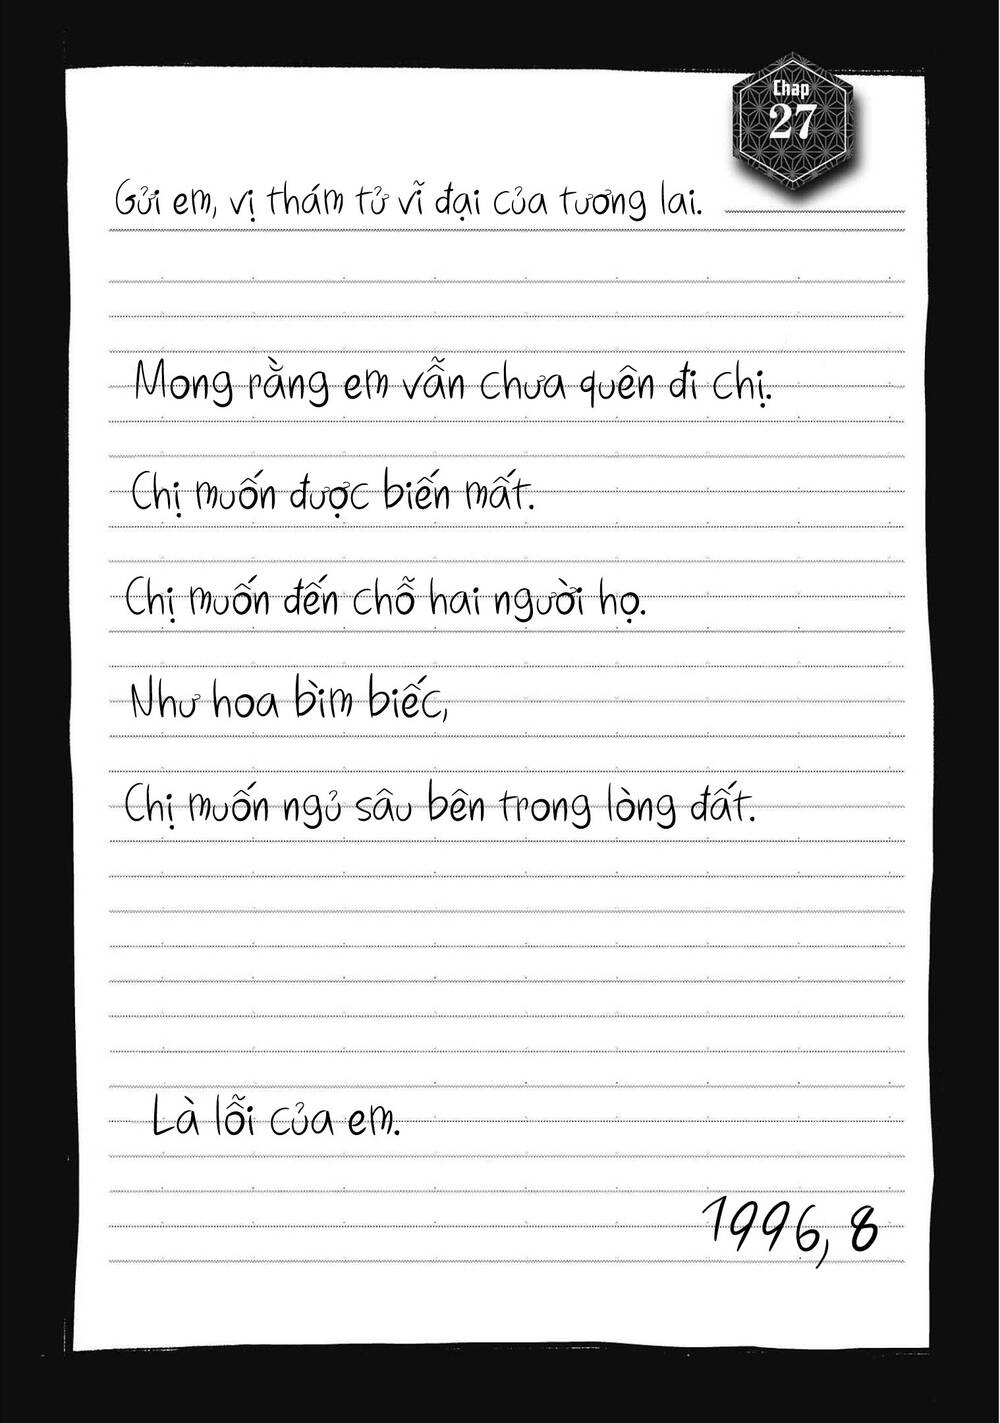 Chap
27
Gửi em, vị thám tử vĩ đại của tương lai.
Mong rằng em vẫn chưa quên đi chị.
Chị muốn được biến mất.
Chị muốn đến chỗ hai người họ.
Như hoa bìm biếc,
Chị muốn ngủ sâu bên trong lòng đất.
Là lỗi của em.
1996, 8